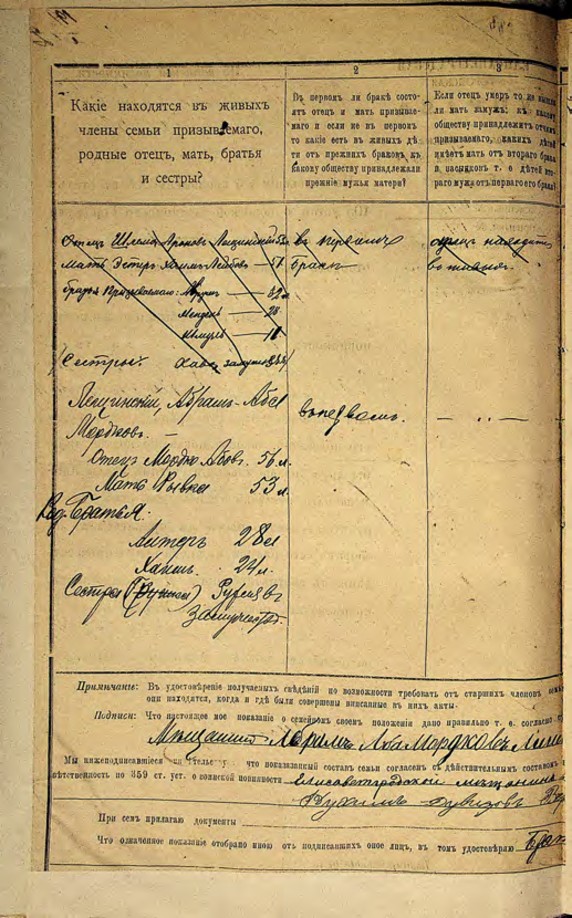 1
2
3
Какіе находятся въ живыхъ
члены семьи призываемаго,
родные отецъ, мать, братья
и сестры?
Въ первомъ ли бракѣ состо-
ятъ отецъ и мать призывае-
маго и если не въ первомъ
то какіе есть въ живыхъ дѣ-
ти отъ прежнихъ браковъ, къ
какому обществу принадлежали
прежніе мужья матери?
Если отецъ умеръ то не вышла
ли мать замужъ: къ какому
обществу принадлежитъ отчимъ
призываемаго, какихъ дѣтей
имѣетъ мать отъ втораго брака
и пасынковъ т. е дѣтей вто-
раго мужа отъ перваго его брака?
Отецъ Шлема Ароновъ Лещинскій
въ первомъ
отецъ находится
Мать Эстеръ Хаимъ-Лейбовъ — 57
бракѣ
въ живыхъ
Братья Призываемаго:
Мендель — 28
18
Сестры: Хава замужемъ
Лещинскій, Абрамъ-Аба
Мордковъ. —
въ первомъ.
— " —
Отецъ Мордко Абовъ. 56 л.
Мать Рывка 53 л.
Род. Братья.
Алтеръ 28 л
Хаимъ. 24 л.
Сестра
замужествѣ.
Примѣчаніе: Въ удостовѣреніе получаемыхъ свѣдѣній по возможности требовать отъ старшихъ членовъ семьи
они находятся, когда и гдѣ были совершены вписанные въ нихъ акты.
Подписи: Что настоящее мое показаніе о семейномъ своемъ положеніи дано правильно т. е. согласно
Мѣщанинъ Абрамъ Аба Мордковъ
Мы нижеподписавшіеся что показанный составъ семьи согласенъ съ дѣйствительнымъ составомъ
вѣтственность по 359 ст. уст. о воинской повинности Елисаветградскій мѣщанинъ
При семъ прилагаю документы
Что означенное показаніе отобрано мною отъ подписавшихъ оное лицъ, въ томъ удостовѣряю